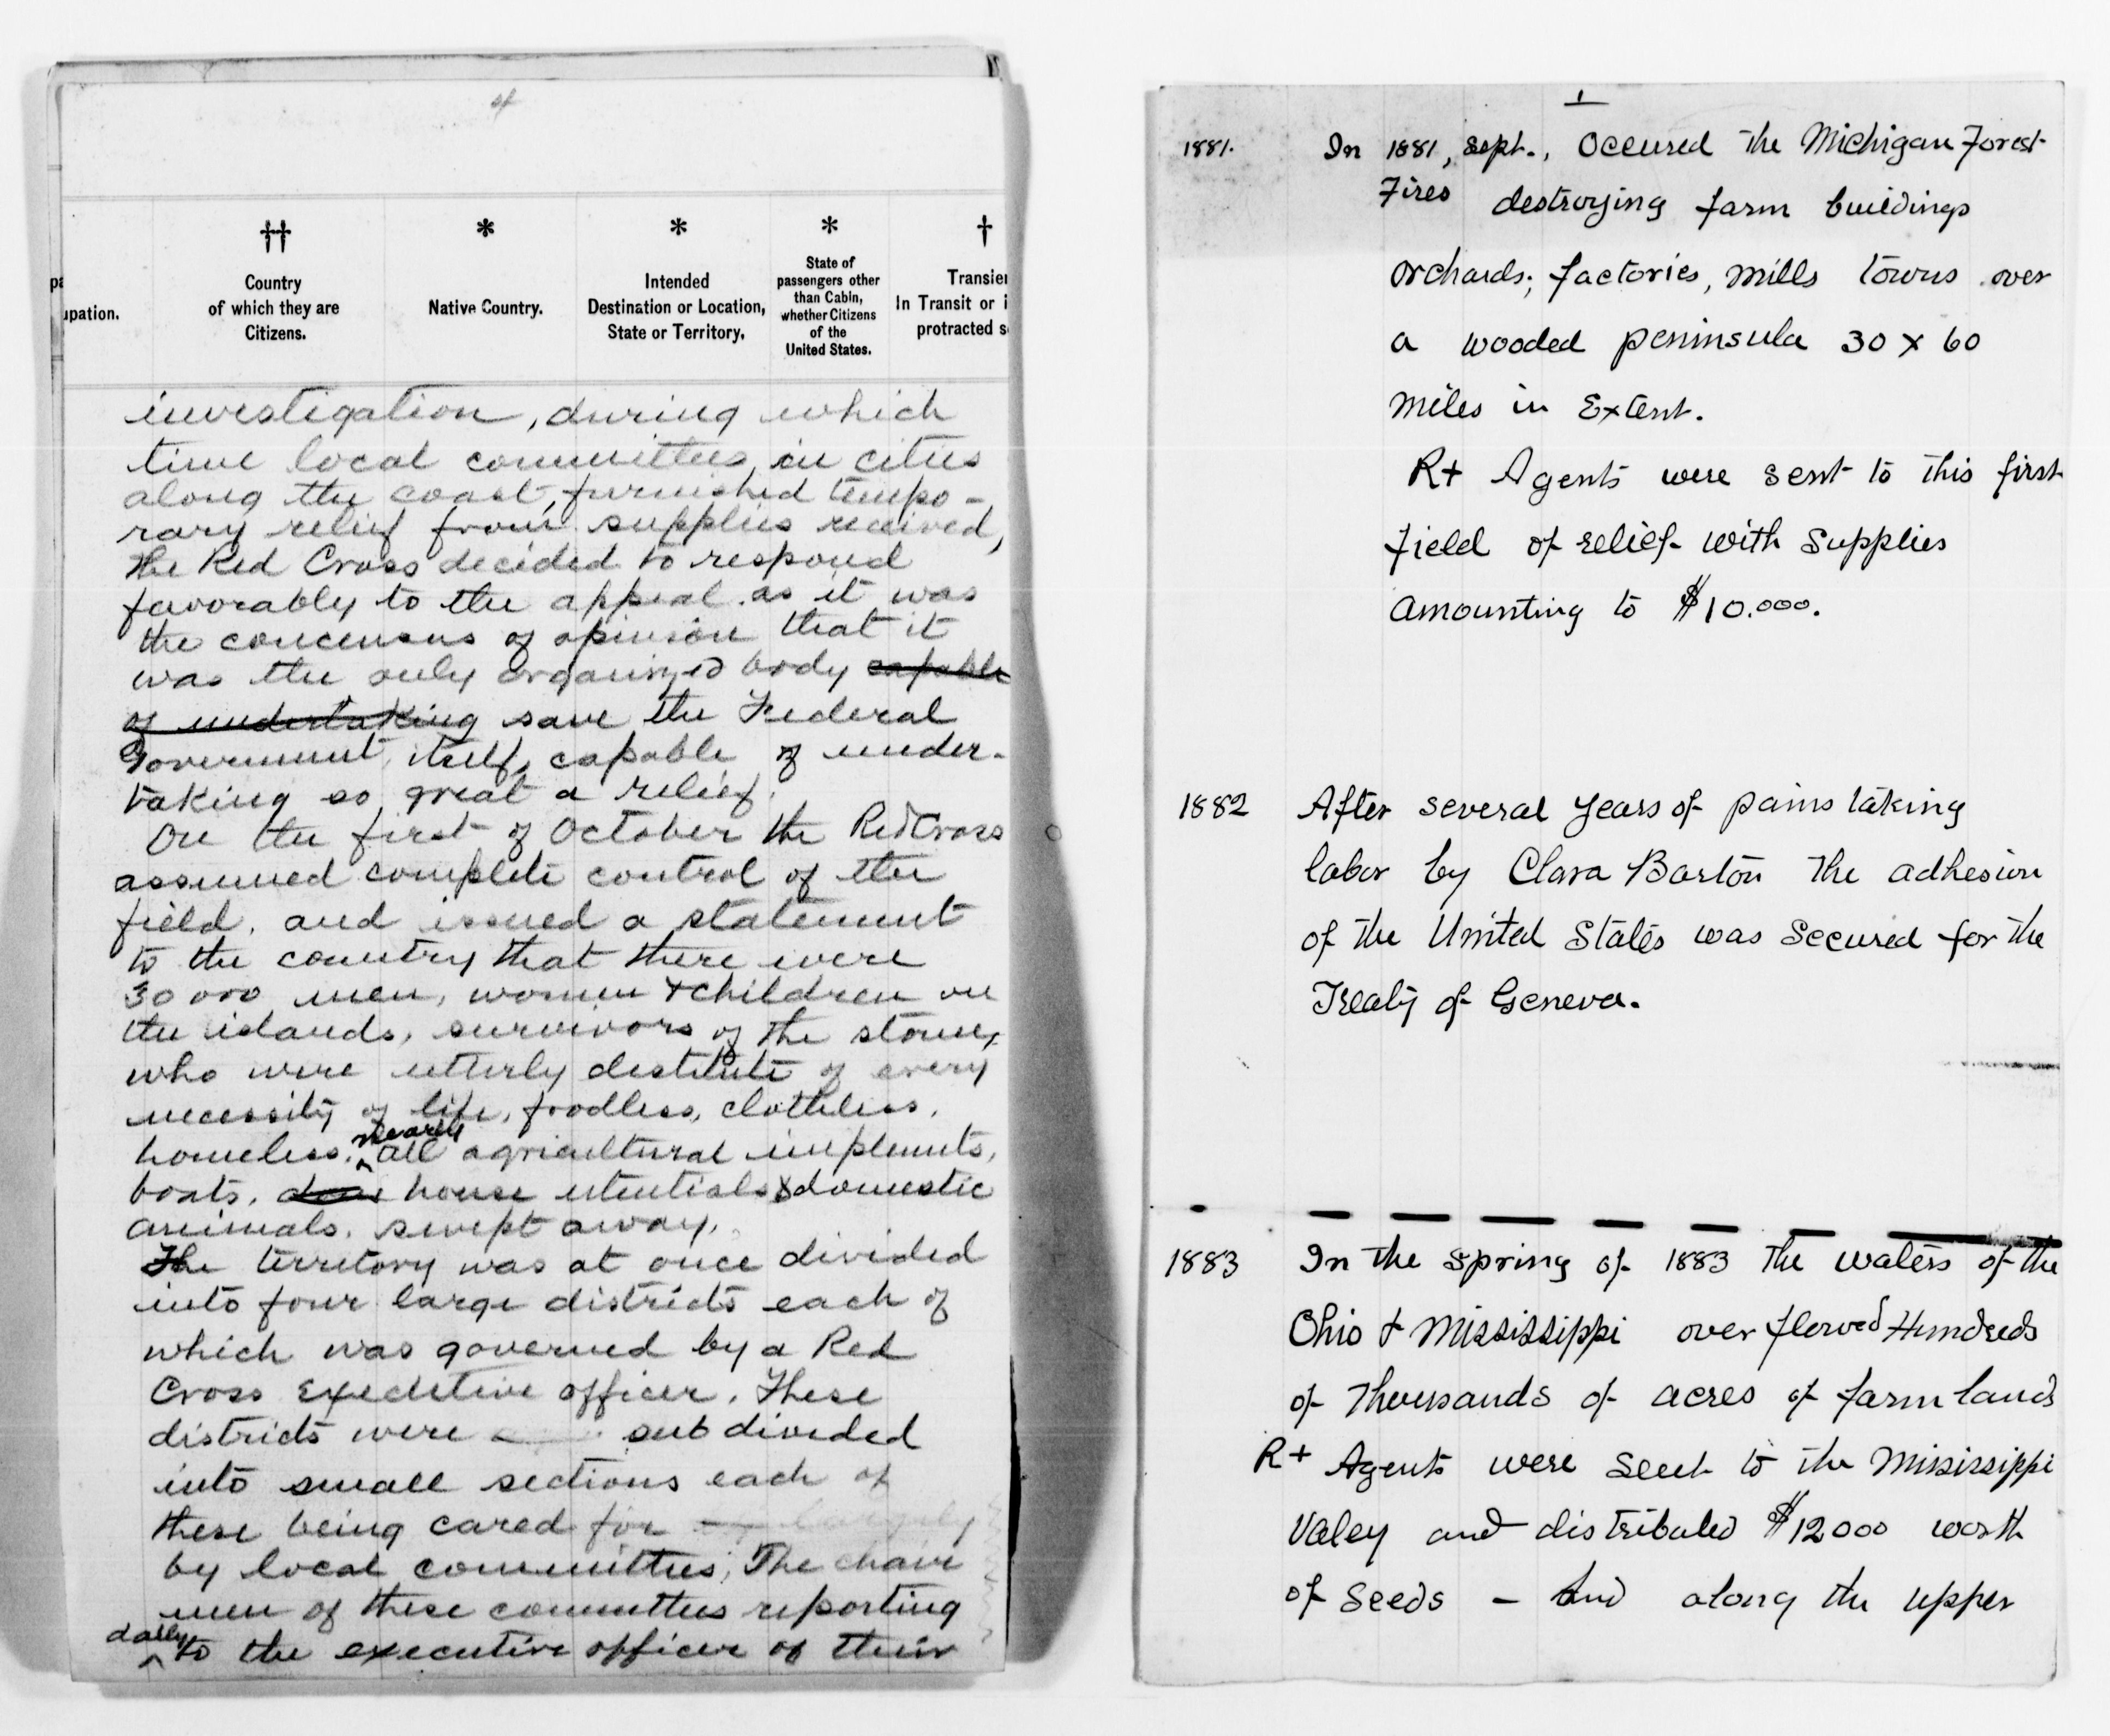 4
upation.
††
Country
of which they are
Citizens.
*
Native Country.
*
Intended
Destination or Location,
State or Territory.
*
State of
passengers other
than Cabin,
whether Citizens
of the
United States.
†
In Transit or
protracted
investigation, during which
time local committees, in cities
along the coast, furnished tempo-
rary relief from supplies received,
the Red Cross decided to respond
favorably to the appeal. as it was
the concensus of opinion that it
was the only organized body capable
of undertaking save the Federal
Government, itself, capable of under-
taking so great a relief.
On the first of October the Red Cross
assumed complete control of the
field, and issued a statement
to the country that there were
30 000 men, women & children on
the islands, survivors of the storm,
who were utterly destitute of every
necessity of life, foodless, clothless,
nearly
homeless. all agricultural implements,
boats, house utentials & domestic
animals, swept away.
The territory was at once divided
into four large districts each of
which was governed by a Red
Cross Executive officer. These
districts were subdivided
into small sections each of
these being cared for largely
by local committees; The chair
men of these committees reporting
daily
to the executive officer of their
1
1881. In 1881, Sept., Occured The Michigan Forest
Fires destroying farm buildings
orchards; factories, mills towns over
a wooded peninsula 30 x 60
miles in Extent.
R+ Agents were sent to this first
field of relief with supplies
amounting to $10.000.
1882 After several years of pains taking
labor by Clara Barton The adhesion
of the United States was secured for the
Treaty of Geneva.
1883 In the spring of 1883 the waters of the
Ohio & Mississippi over flowed Hundreds
of thousands of acres of farm lands
R+ Agents were sent to the Mississippi
Valey and distributed $12000 worth
of seeds – And along the upper